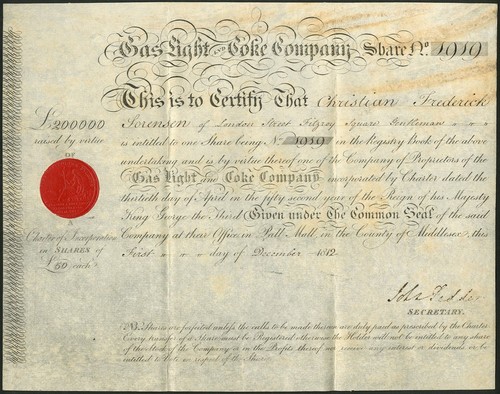 Gas Light and Coke Company Share No. 1919
This is to Certify That Christian Frederick
Sorensen of London Street Fitzroy Square Gentleman
is intitled to one Share being No. 1919 in the Registry Book of the above
undertaking and is by virtue thereof one of the Company of Proprietors of the
Gas Light and Coke Company incorporated by Charter dated the
thirtieth day of April in the fifty second year of the Reign of his Majesty
King George the Third Given under the Common Seal of the said
Company at their Office in Pall Mall in the County of Middlesex this
First day of December 1812
£200000
raised by virtue
OF
A
Charter of Incorporation
in SHARES of
£50 each
SECRETARY.
NB. Shares are forfeited unless the calls to be made thereon are duly paid as prescribed by the Charter
Every transfer of a Share must be Registered otherwise the Holder will not be entitled to any share
of the Stock of the Company or in the Profits thereof nor receive any interest or dividends or be
intitled to Vote in respect of the Share.